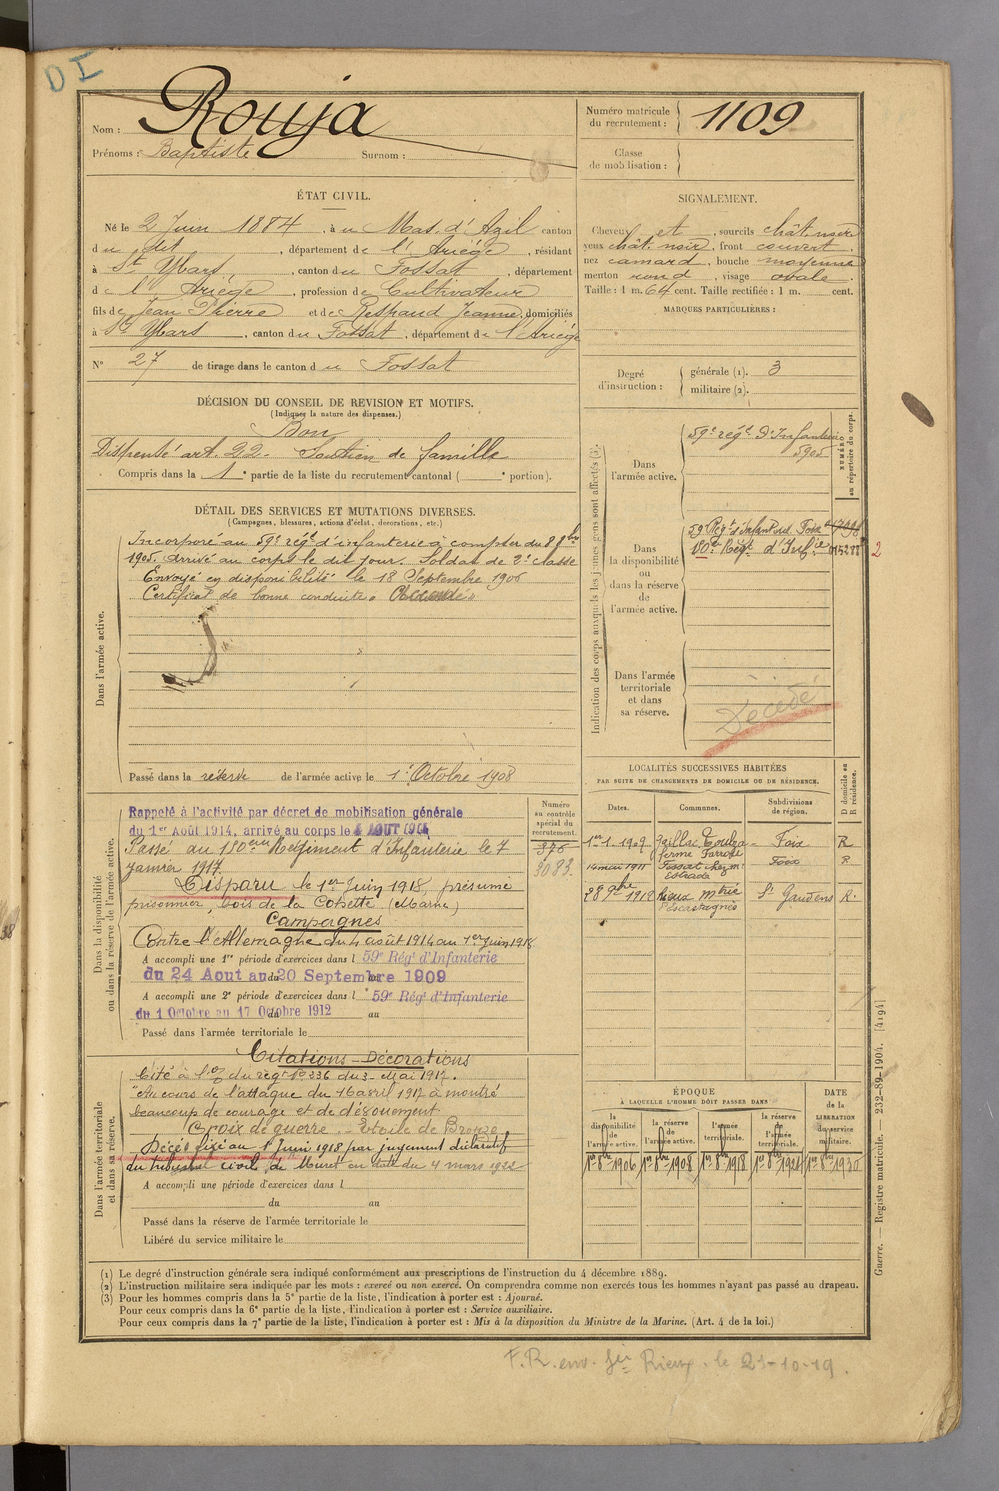 DI
Nom : Rouja
Prénoms : Baptiste Surnom :
Numéro matricule du recrutement : 1109
Classe de mobilisation :
ÉTAT CIVIL.
Né le 2 Juin 1884, à u Mas d'Azil canton
d u dit, département de l'Ariège, résidant
à St Ybars, canton du Fossat, département
de l'Ariège, profession de Cultivateur
fils de Jean Pierre et de Respaud Jeanne, domiciliés
à St Ybars, canton du Fossat, département de l'Ariège
N° 27 de tirage dans le canton d u Fossat
SIGNALEMENT.
Cheveux et, sourcils chât. noir
yeux chât. noir, front couvert,
nez camard, bouche moyenne
menton rond, visage ovale.
Taille : 1 m. 64 cent. Taille rectifiée : 1 m. cent.
MARQUES PARTICULIÈRES :
Degré d'instruction : générale (1). 3
militaire (2).
DÉCISION DU CONSEIL DE REVISION ET MOTIFS.
(Indiquer la nature des dispenses.)
Bon
Dispensé art. 22 - Soutien de famille
Compris dans la 1e partie de la liste du recrutement cantonal ( e portion).
DÉTAIL DES SERVICES ET MUTATIONS DIVERSES.
(Campagnes, blessures, actions d'éclat, décorations, etc.)
Dans l'armée active.
Incorporé au 59e régt d'infanterie à compter du 8 8bre
1905. Arrivé au corps le dit jour. Soldat de 2e classe
Envoyé en disponibilité le 18 Septembre 1906
Certificat de bonne conduite « Accordé »
Passé dans la réserve de l'armée active le 1er Octobre 1908
Indication des corps auxquels les jeunes gens sont affectés (3).
NUMÉRO au répertoire du corps.
Dans l'armée active.
59e régt d'Infanterie
5905
Dans la disponibilité ou dans la réserve de l'armée active.
59e Régt d'Infant sub. Foix
180e Régt d'Infie 015288
2
Dans l'armée territoriale et dans sa réserve.
Décédé
LOCALITÉS SUCCESSIVES HABITÉES
PAR SUITE DE CHANGEMENTS DE DOMICILE OU DE RÉSIDENCE.
Dates. Communes. Subdivisions de région. D domicile ou R résidence.
1er-1-1909 Gaillac Toulza - Foix R
ferme Farrofé
14 mai 1911 Fossat chez mr Foix R
Estrade
28 9bre 1912 Rieux mtrie St Gaudens R.
Pescastagnès
Dans la disponibilité ou dans la réserve de l'armée active.
Numéro au contrôle spécial du recrutement.
376
3083.
Rappelé à l'activité par décret de mobilisation générale
du 1er Août 1914, arrivé au corps le 4 AOUT 1914
Passé au 180eme Régiment d'Infanterie le 7
Janvier 1917.
Disparu le 1er Juin 1918, présumé
prisonnier, bois de la Cohette (Marne)
Campagnes
Contre l'Allemagne du 4 août 1914 au 1er juin 1918
A accompli une 1re période d'exercices dans l 59e Régt d'Infanterie
du 24 Aout au 20 Septembre 1909
A accompli une 2e période d'exercices dans l 59e Régt d'Infanterie
du 1 Octobre au 17 Octobre 1912 au
Passé dans l'armée territoriale le
Dans l'armée territoriale et dans sa réserve.
Citations - Décorations
Cité à l'O/ du régt N° 336 du 3 - Mai 1917.
"Au cours de l'attaque du 16 avril 1917 à montré
beaucoup de courage et de dévouement.
Croix de guerre - Etoile de Bronze
Décès fixé au 1er Juin 1918 par jugement déclaratif
du tribunal civil de Muret en date du 4 mars 1922
A accompli une période d'exercices dans l
du au
Passé dans la réserve de l'armée territoriale le
Libéré du service militaire le
ÉPOQUE
À LAQUELLE L'HOMME DOIT PASSER DANS
la disponibilité de l'armée active. la réserve de l'armée active. l'armée territoriale. la réserve de l'armée territoriale. DATE de la LIBÉRATION du service militaire.
1er 8bre 1906 1er 8bre 1908 1er 8bre 1918 1er 8bre 1924 1er 8bre 1930
Guerre. — Registre matricule. — 232-89-1904. [4194]
(1) Le degré d'instruction générale sera indiqué conformément aux prescriptions de l'instruction du 4 décembre 1889.
(2) L'instruction militaire sera indiquée par les mots : exercé ou non exercé. On comprendra comme non exercés tous les hommes n'ayant pas passé au drapeau.
(3) Pour les hommes compris dans la 5e partie de la liste, l'indication à porter est : Ajourné.
Pour ceux compris dans la 6e partie de la liste, l'indication à porter est : Service auxiliaire.
Pour ceux compris dans la 7e partie de la liste, l'indication à porter est : Mis à la disposition du Ministre de la Marine. (Art. 4 de la loi.)
F.R. env. Gie Rieux. le 21-10-19.